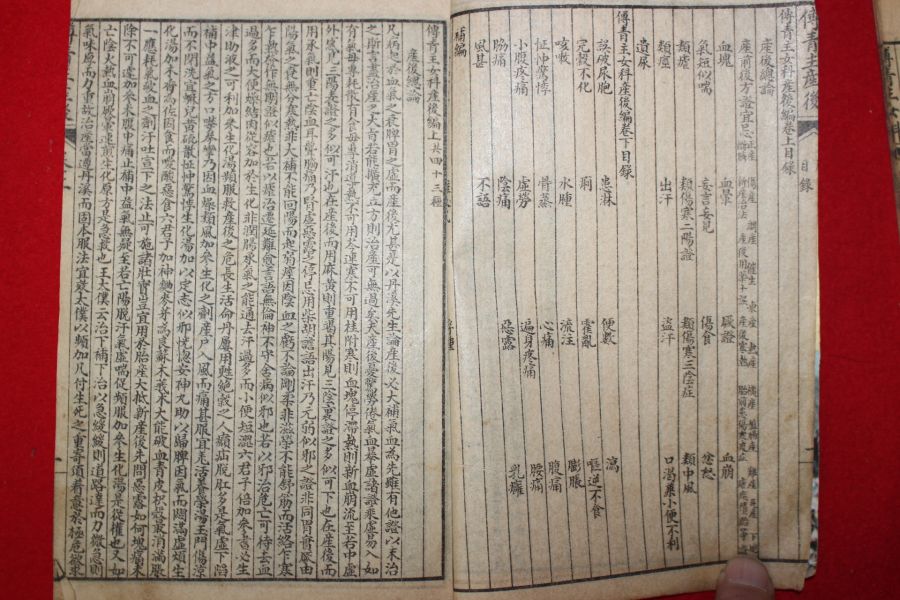 傅青主產後 目錄
傅青主女科產後編卷上目錄
產後總論
產前後方證宜忌 正產 傷產 調產 催生 凍產 熱產 橫產
血塊 血暈 厥證 血崩
氣短似喘 妄言妄見 傷食 忿怒
類瘧 類傷寒二陽證 類傷寒三陰症 類中風
類痙 出汗 盜汗 口渴兼小便不利
遺尿
傅青主女科產後編卷下目錄
誤破尿胞 患淋 便數 瀉
完穀不化 痢 霍亂 嘔逆不食
咳嗽 水腫 流注 膨脹
怔忡驚悸 骨蒸 心痛 腹痛
小腹疼痛 虛勞 遍身疼痛 腰痛
脇痛 陰痛 惡露 乳癰
風甚 不語
補編
傅青主女科產後編上 共四十三種
產後總論
凡病起於血氣之衰脾胃之虛而產後尤甚是以丹溪先生論產後必大補氣血為先雖有他證以末治
之斯言盡治產之大旨若能擴充立方則治產可無過矣夫產後憂驚勞倦氣血暴虛諸證乘虛易入如
有氣毋專耗散有食毋專消導熱不可用芩連寒不可用桂附寒則血塊停滯熱則新血崩流至若中虛
外感見三陽表證之多似可汗也在產後而用麻黃則重竭其陽見三陰裏證之多似可下也在產後而
用承氣則重亡陰血耳聾脇痛乃腎虛惡露之停忌用柴胡譫語出汗乃元弱似邪之證非同胃實厥由
陽氣之衰無分寒熱非大補不能回陽而起弱痙因陰血之虧不論剛柔非滋榮不能舒筋而活絡乍寒
乍熱發作無期證似瘧也若以瘧治遷延難愈言語無倫神不守舍病似邪也若以邪治危亡可待去血
過多而大便燥結肉蓯蓉加於生化非潤腸承氣之能通去汗過多而小便短澀六君子倍加參耆必生
津助液之可利加參生化湯頻服救產後之危長生活命丹屢用甦絕穀之人㿗疝脫肛多是氣虛下陷
補中益氣之方口噤拳攣乃因血燥類風加參生化之劑產戶入風而痛甚服宜羌活養榮湯玉門傷涼
而不閉洗宜䗪兒黃硫散怔忡驚悸生化湯加以定志似邪恍惚安神丸助以歸脾因氣而悶滿虛煩生
化湯加木香為佐因食而噯酸惡食六君子加神麯麥芽為良蘇木莪朮大能破血青皮枳殼最消滿脹
一應耗氣破血之劑汗吐宣下之法止可施諸壯實豈宜用於胎產大抵新產後先問惡露如何塊痛未
除不可遽加參朮腹中痛止補中益氣無疑至若亡陽脫汗氣虛喘促頻服加參生化湯是從權也又如
亡陰火熱血崩厥暈速煎生化原方是急救也王太僕云治下補下治以急緩緩則道路達而力微急則
氣味厚而力重故治產當遵丹溪而固本服法宜效太僕以頻加凡付生死之重寄須着意於極危欲求